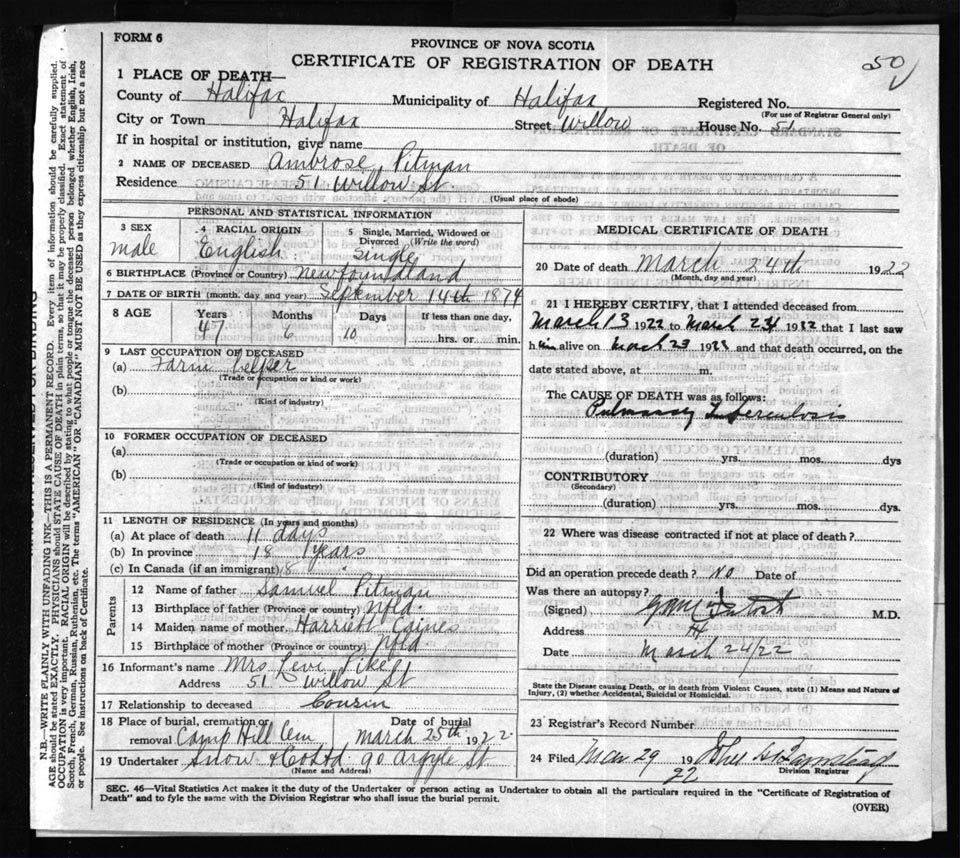 FORM 6
PROVINCE OF NOVA SCOTIA
CERTIFICATE OF REGISTRATION OF DEATH
50
1 PLACE OF DEATH—
County of Halifax Municipality of Halifax Registered No.
(For use of Registrar General only)
City or Town Halifax Street Willow House No. 51
If in hospital or institution, give name
2 NAME OF DECEASED Ambrose Pitman
Residence 51 Willow St.
(Usual place of abode)
PERSONAL AND STATISTICAL INFORMATION
3 SEX male
4 RACIAL ORIGIN English
5 Single, Married, Widowed or Divorced (Write the word) Single
6 BIRTHPLACE (Province or Country) Newfoundland
7 DATE OF BIRTH (month, day and year) September 14th 1874
8 AGE Years Months Days If less than one day,
47 6 10 hrs. or min.
9 LAST OCCUPATION OF DECEASED
(a) Farm helper
(Trade or occupation or kind or work)
(b)
(Kind of industry)
10 FORMER OCCUPATION OF DECEASED
(a)
(Trade or occupation or kind of work)
(b)
(Kind of industry)
11 LENGTH OF RESIDENCE (In years and months)
(a) At place of death 11 days
(b) In province 18 years
(c) In Canada (if an immigrant) 18
Parents
12 Name of father Samuel Pitman
13 Birthplace of father (Province or country) Nfld.
14 Maiden name of mother Harriett Caines
15 Birthplace of mother (Province or country) Nfld.
16 Informant's name Mrs Levi Pike
Address 51 Willow St
17 Relationship to deceased Cousin
18 Place of burial, cremation or removal Camp Hill Cem
Date of burial March 25th 1922
19 Undertaker Snow & Co Ltd 90 Argyle St
(Name and Address)
MEDICAL CERTIFICATE OF DEATH
20 Date of death March 24th 1922
(Month, day and year)
21 I HEREBY CERTIFY, that I attended deceased from
March 13 1922 to March 24 1922 that I last saw
him alive on March 23 1922 and that death occurred, on
date stated above, at m.
The CAUSE OF DEATH was as follows:
Pulmonary Tuberculosis
(duration) yrs. mos. dys
CONTRIBUTORY
(Secondary)
(duration) yrs. mos. dys.
22 Where was disease contracted if not at place of death?
Did an operation precede death? No Date of
Was there an autopsy?
(Signed) M.D.
Address
Date March 24/22
State the Disease causing Death, or in death from Violent Causes, state (1) Means and Nature of
Injury, (2) whether Accidental, Suicidal or Homicidal.
23 Registrar's Record Number
24 Filed Mar 29 1922
Division Registrar
SEC. 46—Vital Statistics Act makes it duty of the Undertaker or person acting as Undertaker to obtain all the particulars required in the "Certificate of Registration of
Death" and to fyle the same with the Division Registrar who shall issue the burial permit.
(OVER)
N.B.—WRITE PLAINLY WITH UNFADING INK—THIS IS A PERMANENT RECORD. Every item of information should be carefully supplied.
AGE should be stated EXACTLY. PHYSICIANS should STATE CAUSE OF DEATH in plain terms, so that it may be properly classified. Exact statement of
OCCUPATION is very important. RACIAL ORIGIN will be described by stating to what people or tongue the deceased person belonged whether English, Irish,
Scotch, French, German, Russian, Ruthenian, etc. The terms "AMERICAN" OR "CANADIAN" MUST NOT BE USED as they express citizenship but not a race
or people. See instructions on back of Certificate.